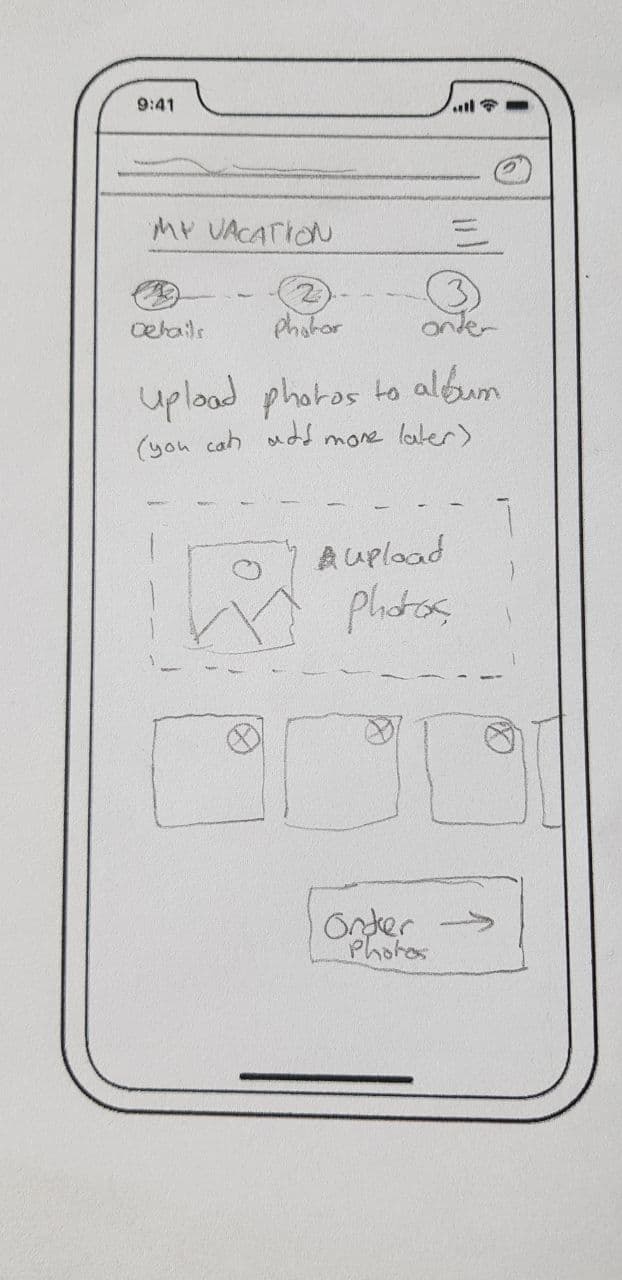 9:41
MY VACATION
2 3
Details photos order
upload photos to album
(you can add more later)
upload
photos
order
photos